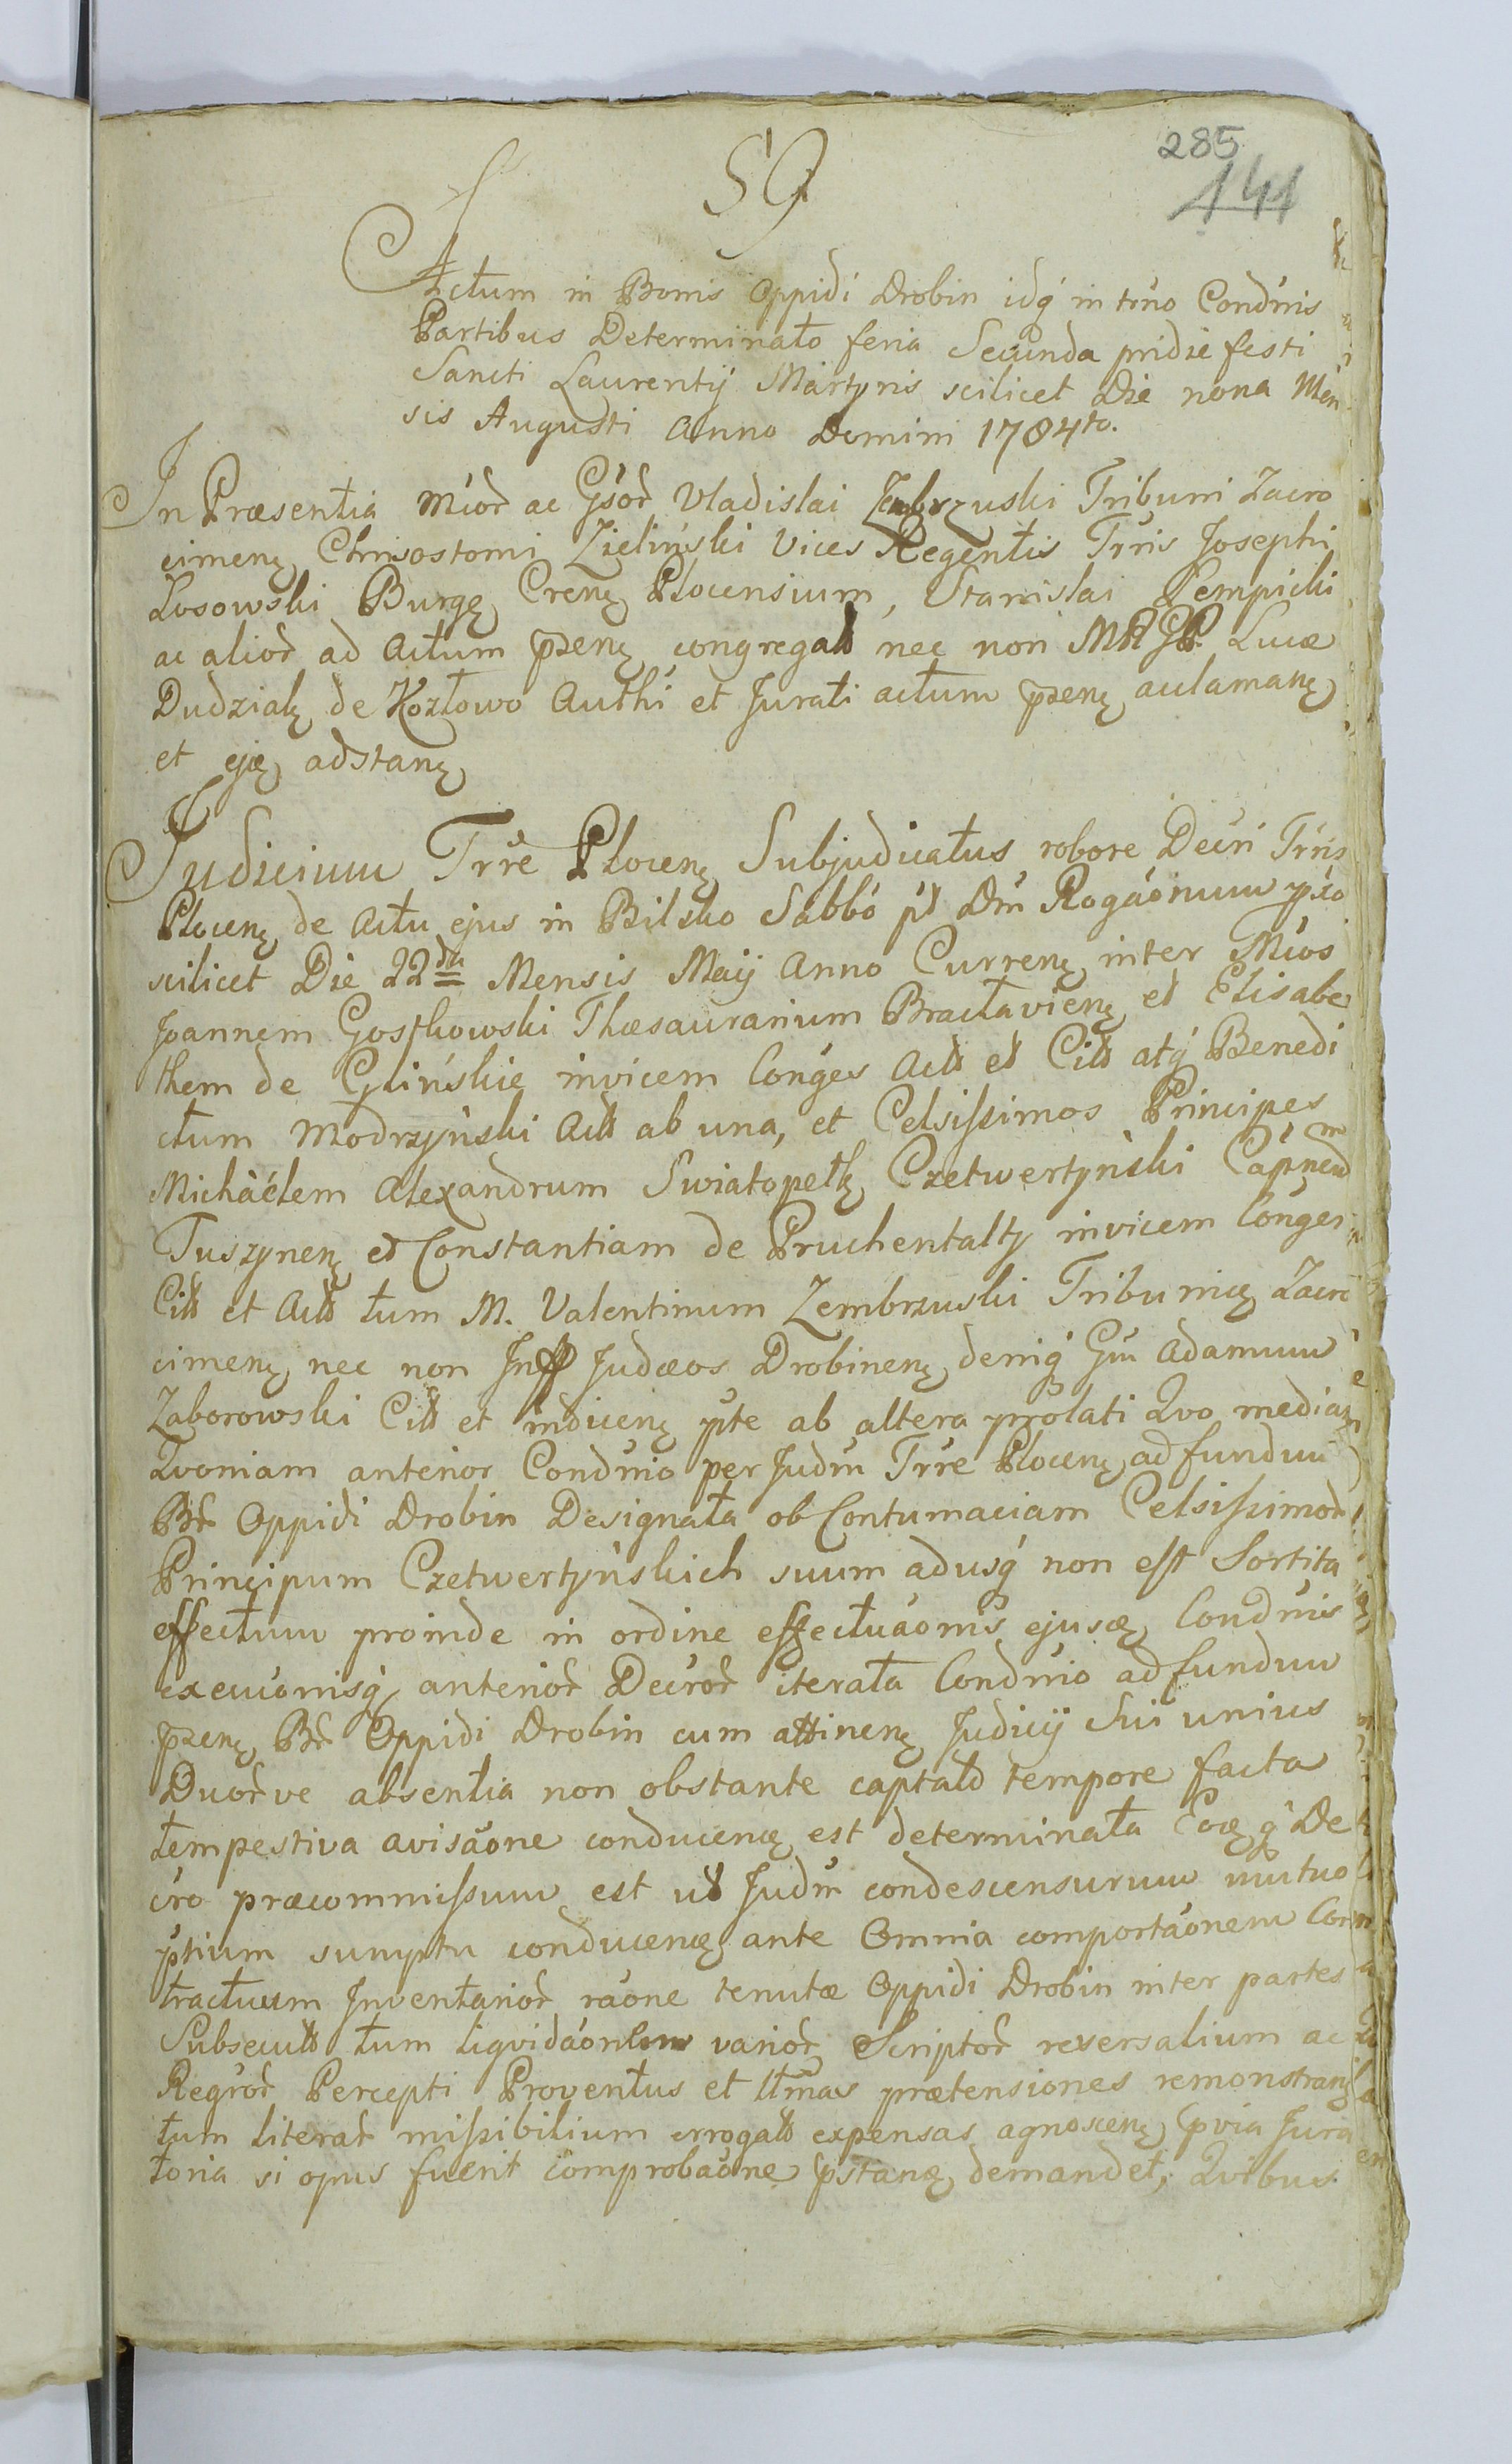 285
59
141
Actum in Bonis Oppidi Drobin idq́ in trno Condnis
Partibus Determinato feria Secunda pridie festi
Sancti Laurentij Martyris scilicet Die nona Men
sis Augusti Anno Domini 1784to.
In Præsentia Mcor ac Gsor Vladislai Zembrzuski Tribuni Zacro
cimenę Chrisostomi Zieliński Vices Regentis Trris Josephi
Losowski Burgę Crenę Plocensium, Stanislai Pempicki
ac alior ad Actum pzenę congregat nec non MM GP. Lucæ
Dudzialę de Kozłowo Authi et Jurati actum pzenę aclamanę
et ejæ adstanę
Judicium Trre Plocenę Subjudicatus robore Decri Trris
Plocenę de Actu ejus in Bilsko Sabbo pt Dm Rogaonum pxo
scilicet Die 22da Mensis Maij Anno Currenę inter Mcos
Joannem Gostkowski Thæsaurarium Bractavienę et Elisabe
them de Glińskie invicem Conges Act et Cit atq́ Benedi
ctum Modrzyński Act ab una, et Celsissimos Principes
Michaélem Alexandrum Swiatopełk Czetwertyński Capnem
Tuszynenę et Constantiam de Pruchentalty invicem Conges
Cit et Act tum M. Valentinum Zembrzuski Tribunicę Zacro
cimenę nec non Jnff Judæos Drobinenę deniq́ Gm Adamum
Zaborowski Cit et indicenę pte ab altera prolati Qvo median
Qvoniam anterior Condnio per Judm Trre Plocenę ad fundum
Br Oppidi Drobin Designata ob Contumaciam Celsissimor
Principum Czetwertyńskich suum adusq́ non est Sortita
effectum proinde in ordine effectuaonis ejusæ Condnis
execuonisq́ anterior Decror iterata Condnio ad fundum
pzenę Br Oppidi Drobin cum attinenę Judicij Sui unius
Duorve absentia non obstante captato tempore facta
tempestiva avisaone conducenę est determinata Eoæ q́ De
cro præcommissum est ut Judm condescensurum mutuo
ptium sumptu conducenę ante Omnia comportaonem Con
tractuum Jnventarior raone tenutæ Oppidi Drobin inter partes
Subsecut tum liqvidaonem varior Scriptor reversalium ac
Regror Percepti Proventus et ltmas prætensiones remonstranę
tum literar missibilium errogat expensas agnoscenę pvia Jura
toria si opus fuerit comprobaone pstanę demandet, Qvibus